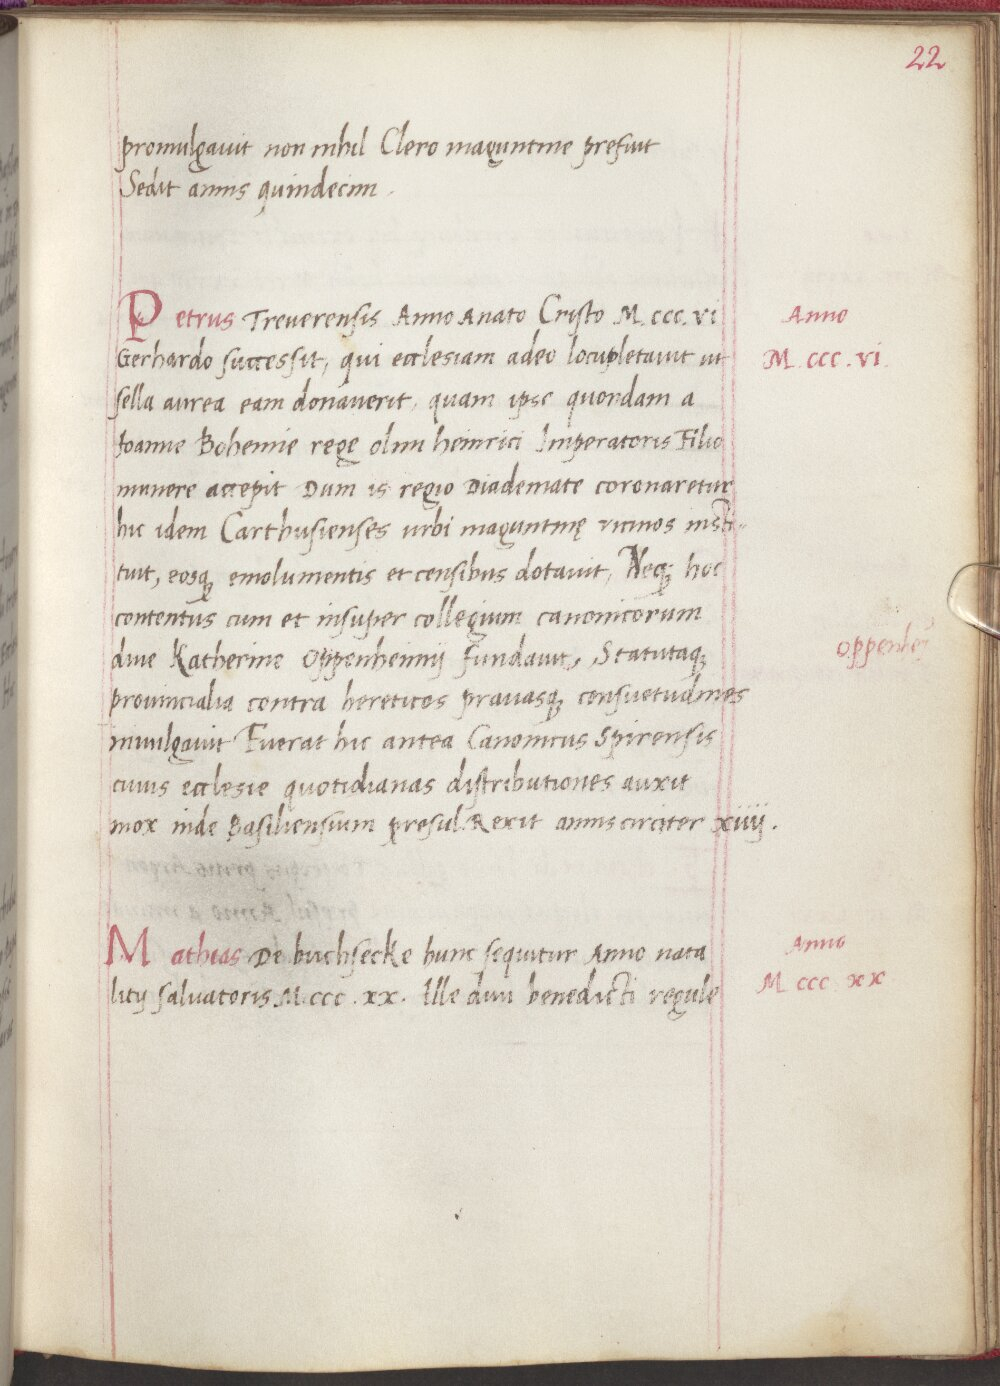 22
promulgavit non nihil Clero maguntine prefuit
Sedit annis quindecim.
Petrus Treverensis Anno Anato Cristo M. ccc. vi
Anno
Gerhardo successit, qui ecclesiam adeo locupletavit ut
M. ccc. vi.
sella aurea eam donaverit, quam ipse quondam a
Joanne Bohemie rege olim heinrici Imperatoris Filio
munere accepit Dum is regio Diademate coronaretur
hic idem Carthusienses urbi maguntinę vicinos insti-
tuit, eosq; emolumentis et censibus dotavit, Neq; hoc
contentus cum et insuper collegium canonicorum
dive Katherine Oppenheimij fundavit, Statutaq;
oppenhei
provincialia contra hereticos pravasq; consuetudines
invulgavit Fuerat hic antea Canonicus Spirensis
cuius ecclesie quotidianas distributiones auxit
mox inde Basiliensium presul. Rexit annis circiter xiiij.
Mathias De buchsecke hunc sequitur Anno nata
Anno
litij salvatoris M. ccc. xx. Ille divi benedicti regule
M. ccc xx